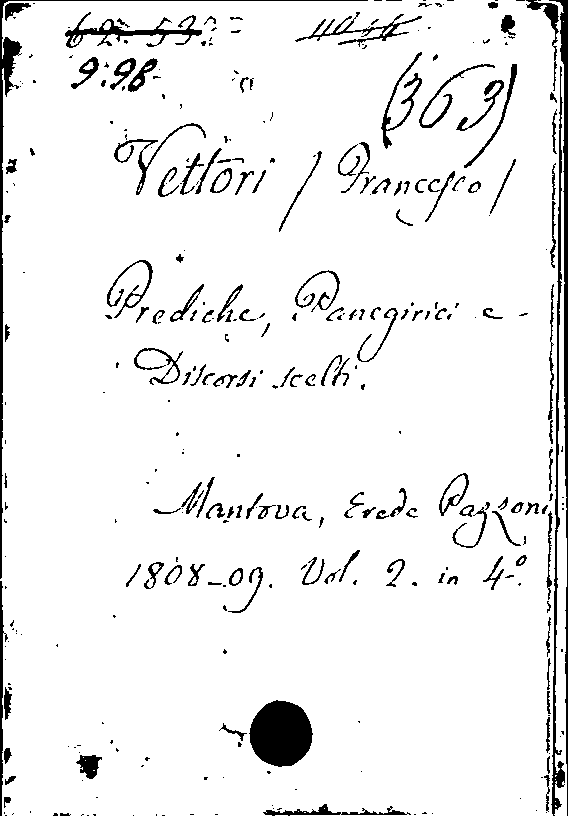 9.98.
(363)
Vettori / Francesco /
Prediche, Panegirici e -
Discorsi scelti.
Mantova, Erede Pazzoni,
1808-09. Vol. 2. in 4.º